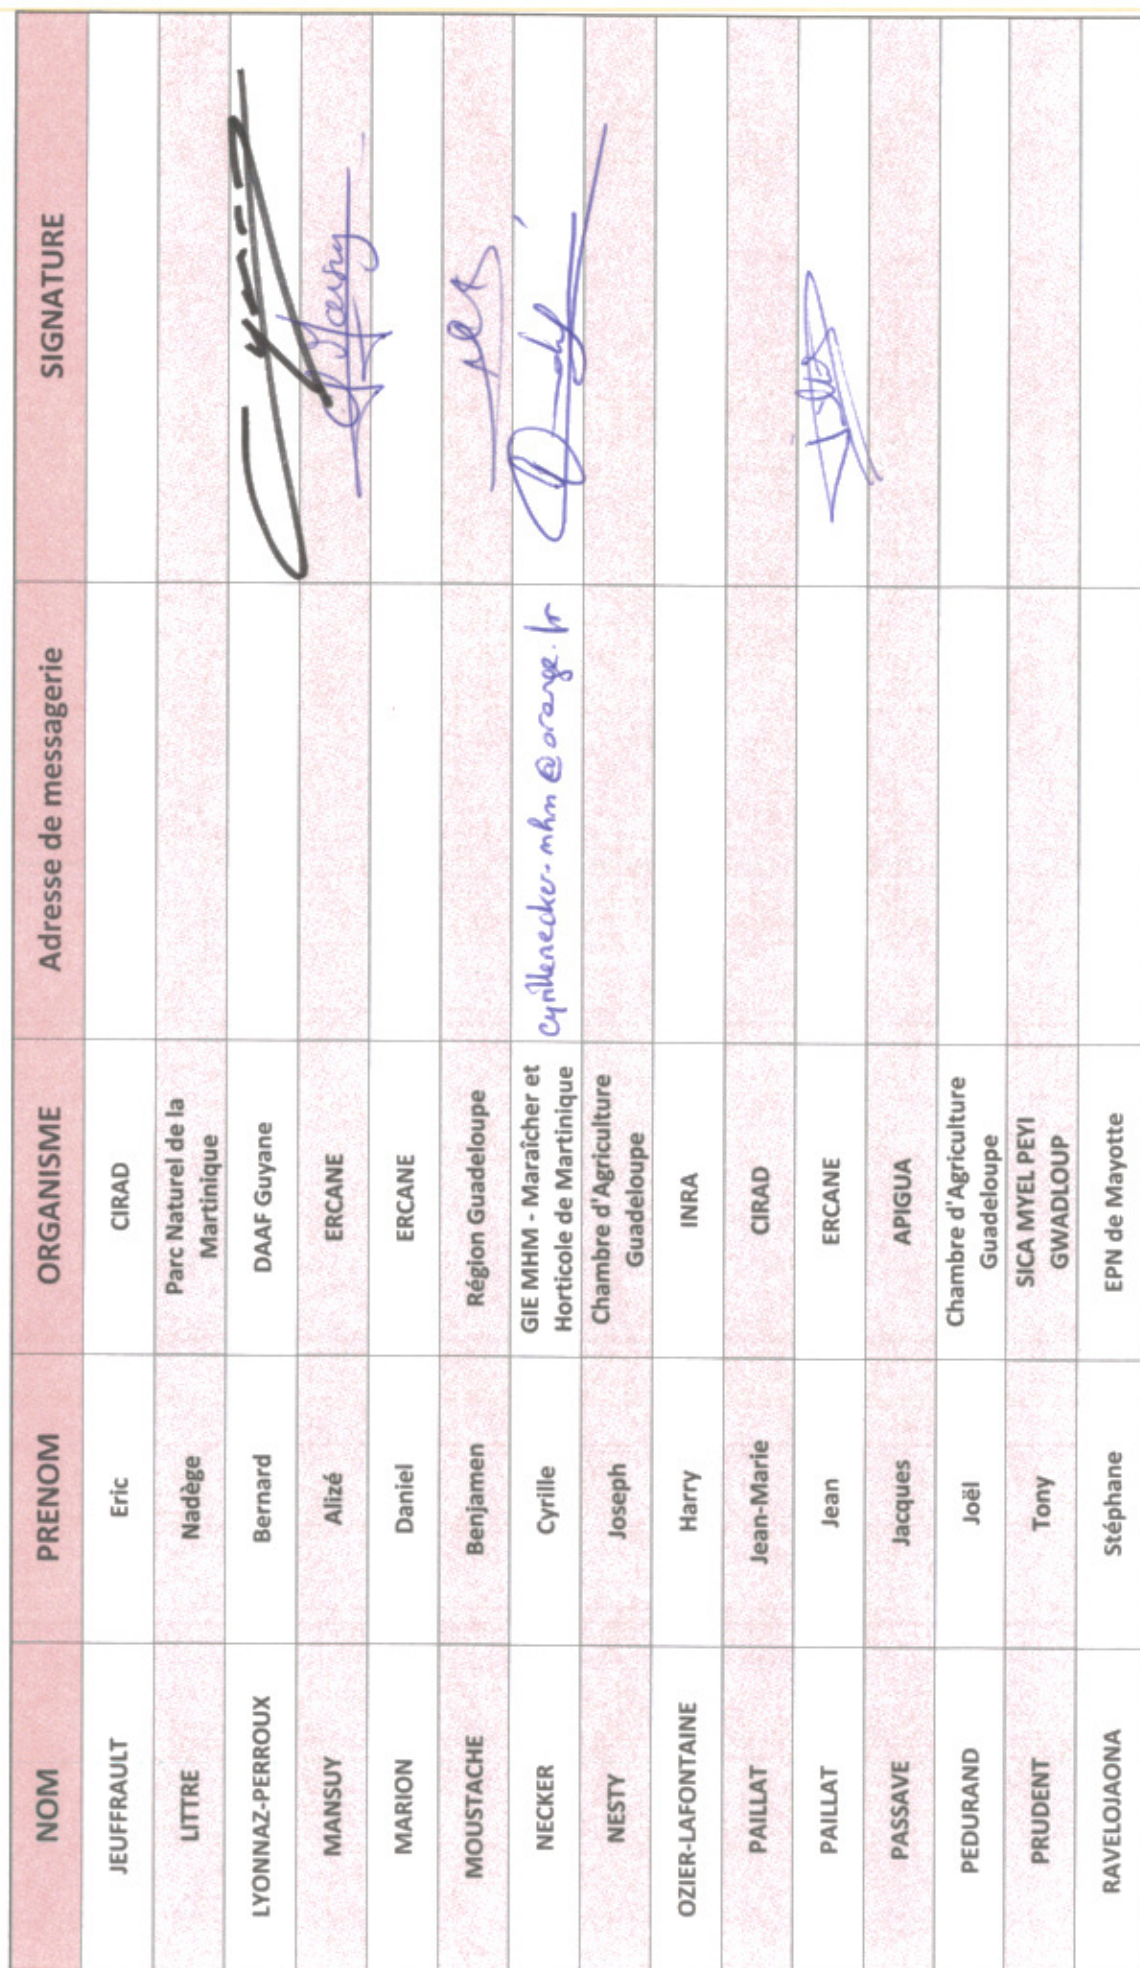 NOM PRENOM ORGANISME Adresse de messagerie SIGNATURE
JEUFFRAULT Eric CIRAD
LITTRE Nadège Parc Naturel de la
Martinique
LYONNAZ-PERROUX Bernard DAAF Guyane
MANSUY Alizé ERCANE
MARION Daniel ERCANE
MOUSTACHE Benjamen Région Guadeloupe
NECKER Cyrille GIE MHM - Maraîcher et cyrillenecker-mhm@orange.fr
Horticole de Martinique
NESTY Joseph Chambre d'Agriculture
Guadeloupe
OZIER-LAFONTAINE Harry INRA
PAILLAT Jean-Marie CIRAD
PAILLAT Jean ERCANE
PASSAVE Jacques APIGUA
PEDURAND Joël Chambre d'Agriculture
Guadeloupe
PRUDENT Tony SICA MYEL PEYI
GWADLOUP
RAVELOJAONA Stéphane EPN de Mayotte